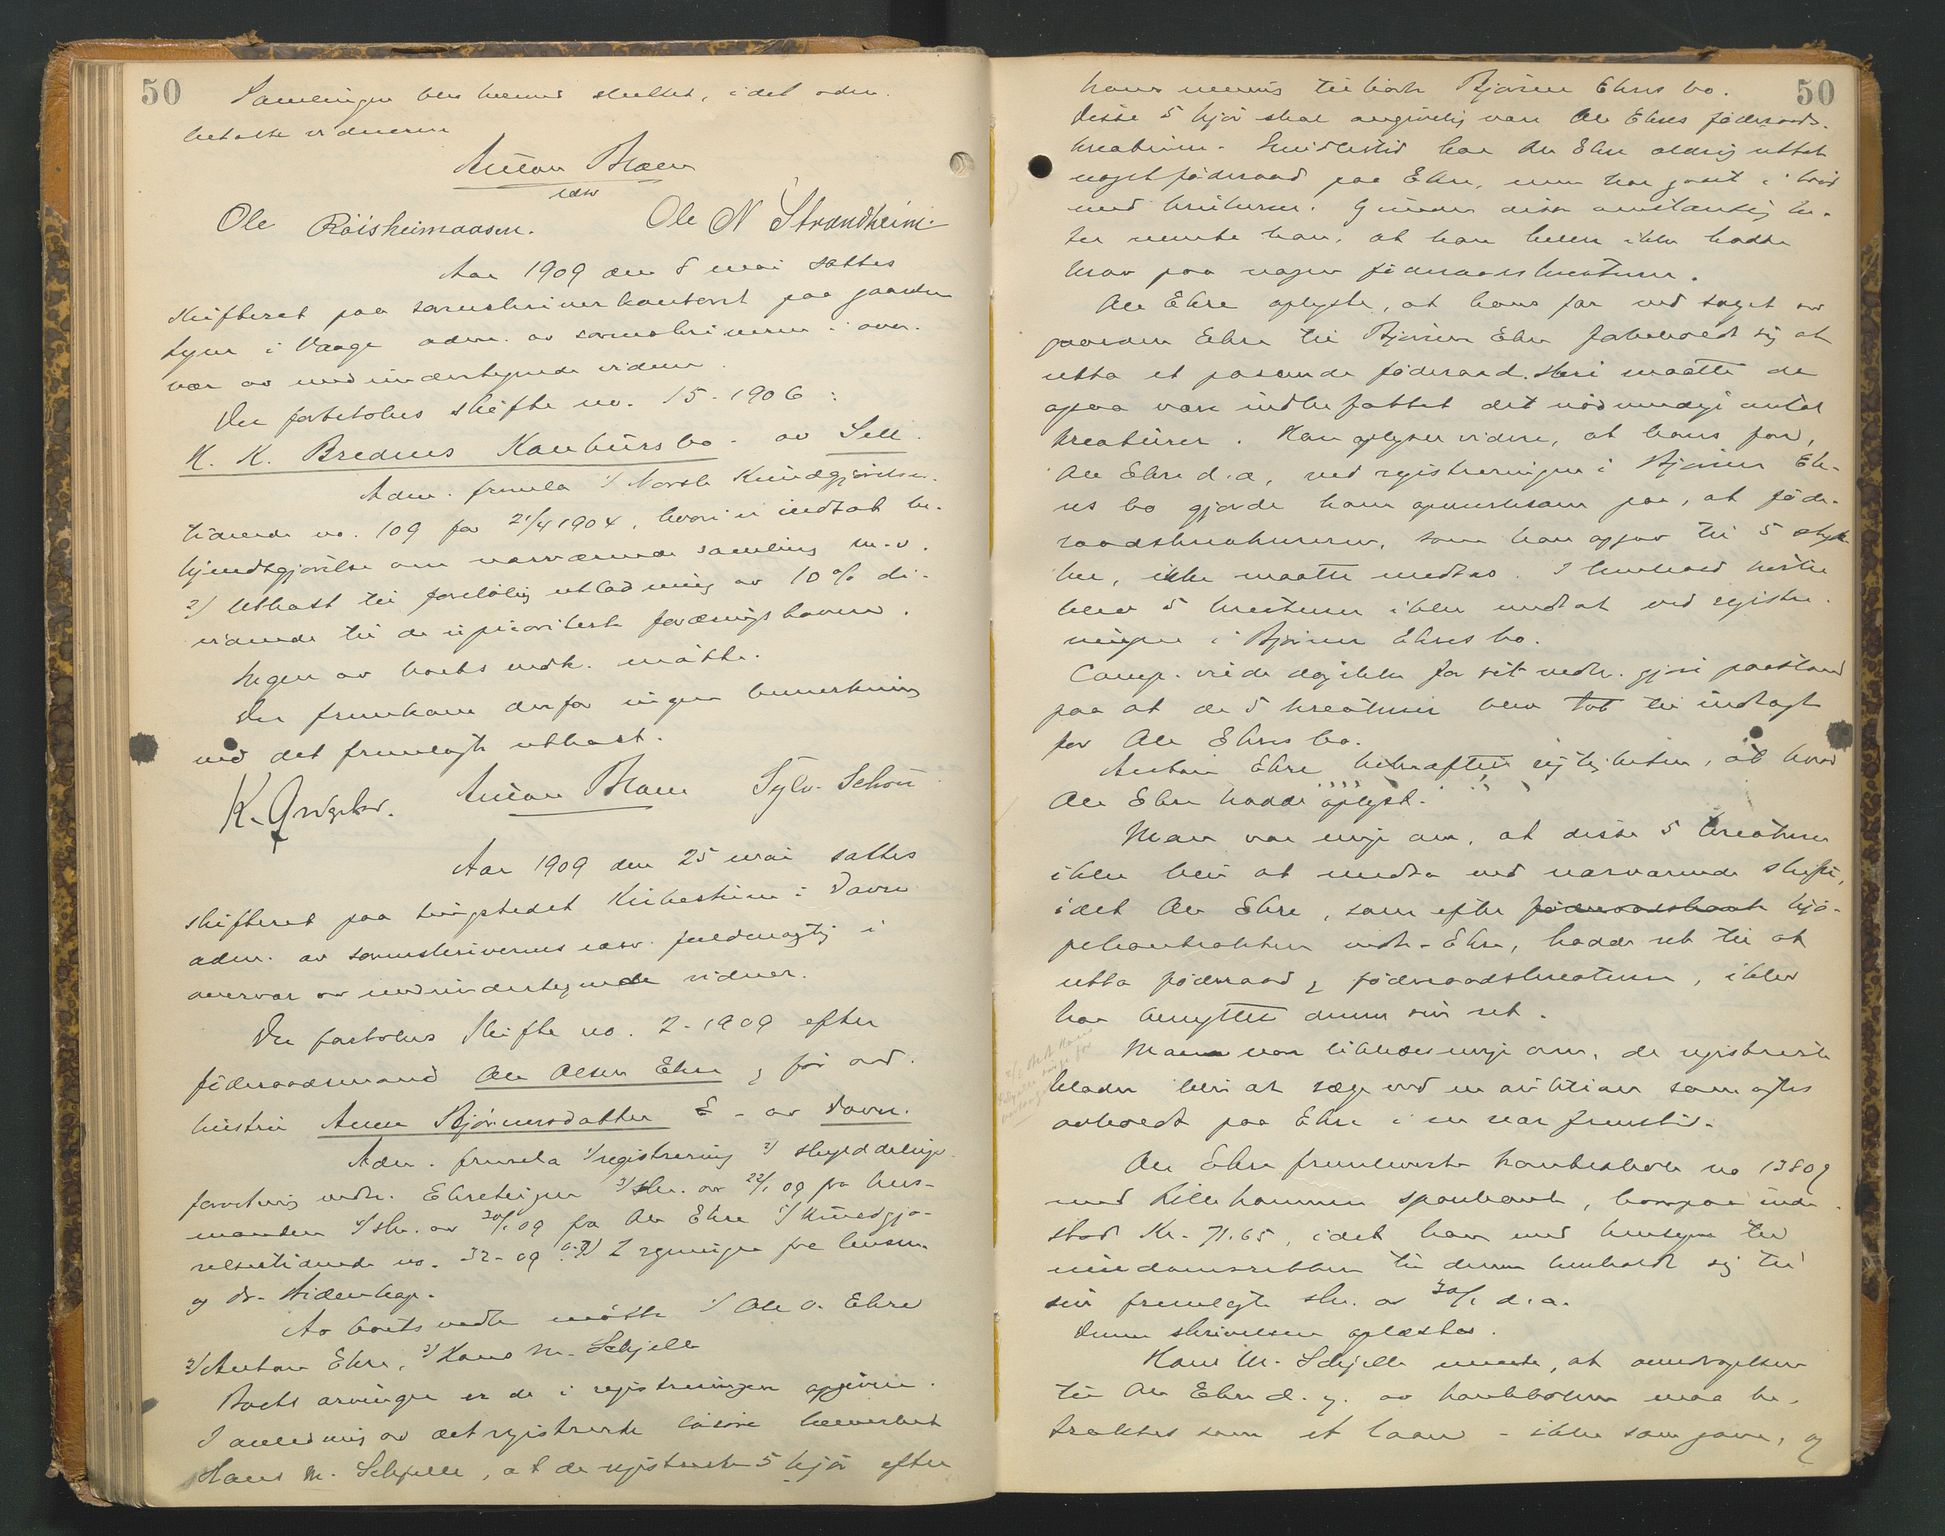 50
Samlingen blev herved sluttet, idet adm.
betalte vidnerne
Anton Bræin
cdw
Ole Röisheimaasen. Ole N Strandheim.
Aar 1909 den 8 mai sattes
skifteret paa sorenskriverkontoret paa gaarden
i Vaage adm. av sorenskriveren i over-
vær av medundertegnede vidner.
Der foretokes skifte no. 15-1906:
K. K. Bredens Konkursbo - av Sell.
Adm. fremla 1/ Norsk Kundgjörelses-
tidende no. 109 for 21/4 1904, hvori er indtat be-
kjendtgjörelse om nærværende samling m.v.
2/ Utkast til foreløbig utlodning av 10% di-
vidende til de uprioriterte fordringshavere.
Ingen av boets vedk. møtte.
Der fremkom derfor ingen bemerkning
ved det fremlagte utkast.
K. Anton Bræin Sylv. Schou
Aar 1909 den 25 mai sattes
skifteret paa tingstedet Kirkestuen i Dovre
adm. av sorenskriverens edsv. fuldmægtig i
overvær av medundertegnede vidner.
Der foretokes skifte no. 2-1909 efter
føderaadsmand Ole Olsen Ekre & før avd.
hustru Anne Bjørnersdatter E - av Dovre.
Adm. fremla 1/ registrering 2/ skylddelings-
forretning vedk. Ekreteigen 3/ skr. av 22/1 09 fra lens-
manden 4/ skr. av 30/1 09 fra Ole Ekre 5/ Kundgjö-
relsestidende no. 32-09 6-7/ 2 regninger fra lensm.
og dr.
Av boets vedk. møtte 1/ Ole O. Ekre
2/ Anton Ekre, 3/ Hans M. Schjelle
Boets arvinger er de i registreringen opgivne.
I anledning av det registrerte løsøre bemerket
Hans M. Schjelle, at de registrerte 5 kjör efter
50
hans mening tilhörte Bjørner Ekres bo.
Disse 5 kjör skal angivelig være Ole Ekres føderaads-
kreaturer. Imidlertid har Ole Ekre aldrig uttat
noget føderaad paa Ekre, men har gaat i bröd
med brukeren. Grundet disse omstændighe-
ter mente han, at han heller ikke hadde
krav paa nogen føderaadskreaturer.
Ole Ekre oplyste, at hans far ved salget av
gaarden Ekre til Bjørner Ekre forbeholdt sig at
utta et passende føderaad. Heri maatte da
ogsaa være indbefattet det nödvendige antal
kreaturer. Han oplyser videre, at hans far,
Ole Ekre d.æ., ved registreringen i Bjørner Ek-
res bo gjorde ham opmerksom paa, at føde-
raadskreaturerne, som han opgav til 5 styk-
ker, ikke maatte medtas. I henhold hertil
blev 5 kreaturer ikke medtat ved registre-
ringen i Bjørner Ekres bo.
Comp. vilde dog ikke for sit vedk. gjöre paastand
paa at de 5 kreaturer blev tat til indtægt
for Ole Ekres bo.
Anton Ekre bekræftet rigtigheten, at hvad
Ole Ekre hadde oplyst.
Man var enig om, at disse 5 kreaturer
ikke blir at medta ved nærværende skifte,
idet Ole Ekre, som efter føderaadskont kjö-
pekontrakten vedk. Ekre, hadde ret til at
utta føderaad & føderaadskreaturer, ikke
har benyttet denne sin ret.
Man var likeledes enig om, de registrerte
klæder blir at sælge ved en auktion som agtes
avholdt paa Ekre i en nær fremtid.
Ole Ekre fremleverte bankbok no 13809
med Lillehammer sparebank, hvorpaa inde-
stod Kr. 71.65, idet han med hensyn til
eiendomsretten til denne henholdt sig til
sin fremlagte skr. av 30/1 d.a.
Denne skrivelsen oplæstes.
Hans M. Schjelle mente, at overdragelsen
til Ole Ekre d.y. av bankboken maa be-
traktes som et laan - ikke som gave, og